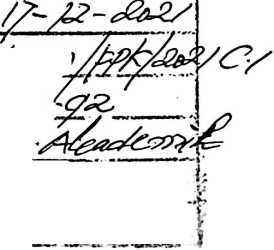 17-12-2021
1/FPK/2021 C.1
92
Akademik